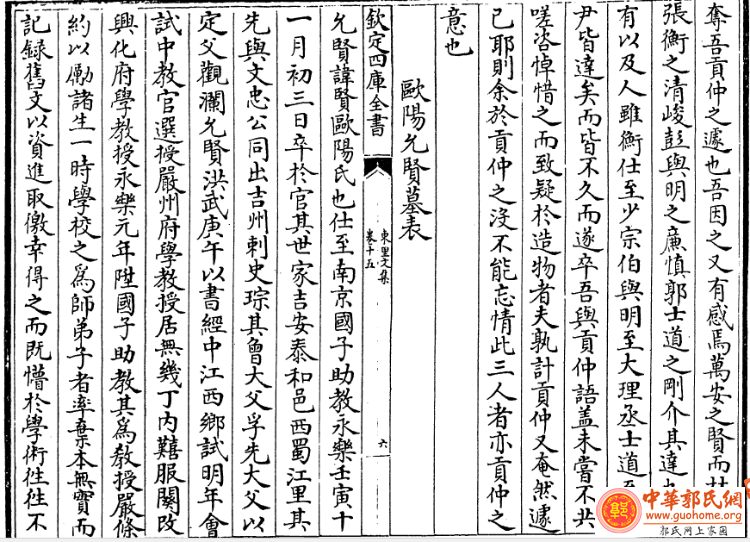 奪吾貢仲之遽也吾因之又有感焉萬安之賢而
張衡之清峻彭與明之廉慎郭士道之剛介其達
有以及人雖衡仕至少宗伯與明至大理丞士道
尹皆達矣而皆不久而遂卒吾與貢仲語盖未嘗不共
嗟咨悼惜之而致疑於造物者夫孰計貢仲又奄然遽
已耶則余於貢仲之沒不能忘情此三人者亦貢仲之
意也
歐陽允賢墓表
欽定四庫全書
東里文集
卷十五
六
允賢諱賢歐陽氏也仕至南京國子助教永樂壬寅十
一月初三日卒於官其世家吉安泰和邑西蜀江里其
先與文忠公同出吉州刺史琮其曾大父孚先大父以
定父觀瀾允賢洪武庚午以書經中江西鄉試明年會
試中教官選授嚴州府學教授居無幾丁内囏服闋改
興化府學教授永樂元年陞國子助教其為教授嚴條
約以勵諸生一時學校之為師弟子者率棄本無實而
記録舊文以資進取僥幸得之而既懵於學術徃徃不
中華郭氏網
www.guohome.org
郭氏网上家园